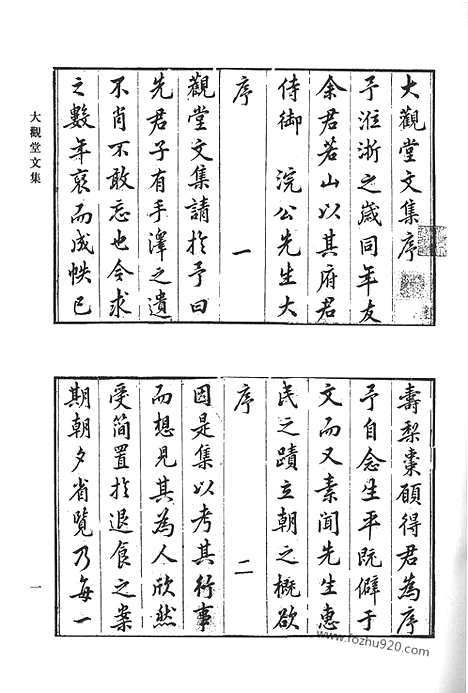 大觀堂文集序
予涖浙之歲同年友
余君若山以其府君
侍御 浣公先生大
序 一
觀堂文集請於予曰
先君子有手澤之遺
不肖不敢忘也今求
之數年裒而成帙已
壽梨棗願得君為序
予自念生平既僻于
文而又素聞先生惠
民之蹟立朝之概欲
序 二
因是集以考其行事
而想見其為人欣然
受簡置於退食之案
期朝夕省覽乃每一
大觀堂文集
一
www.fozhu920.com